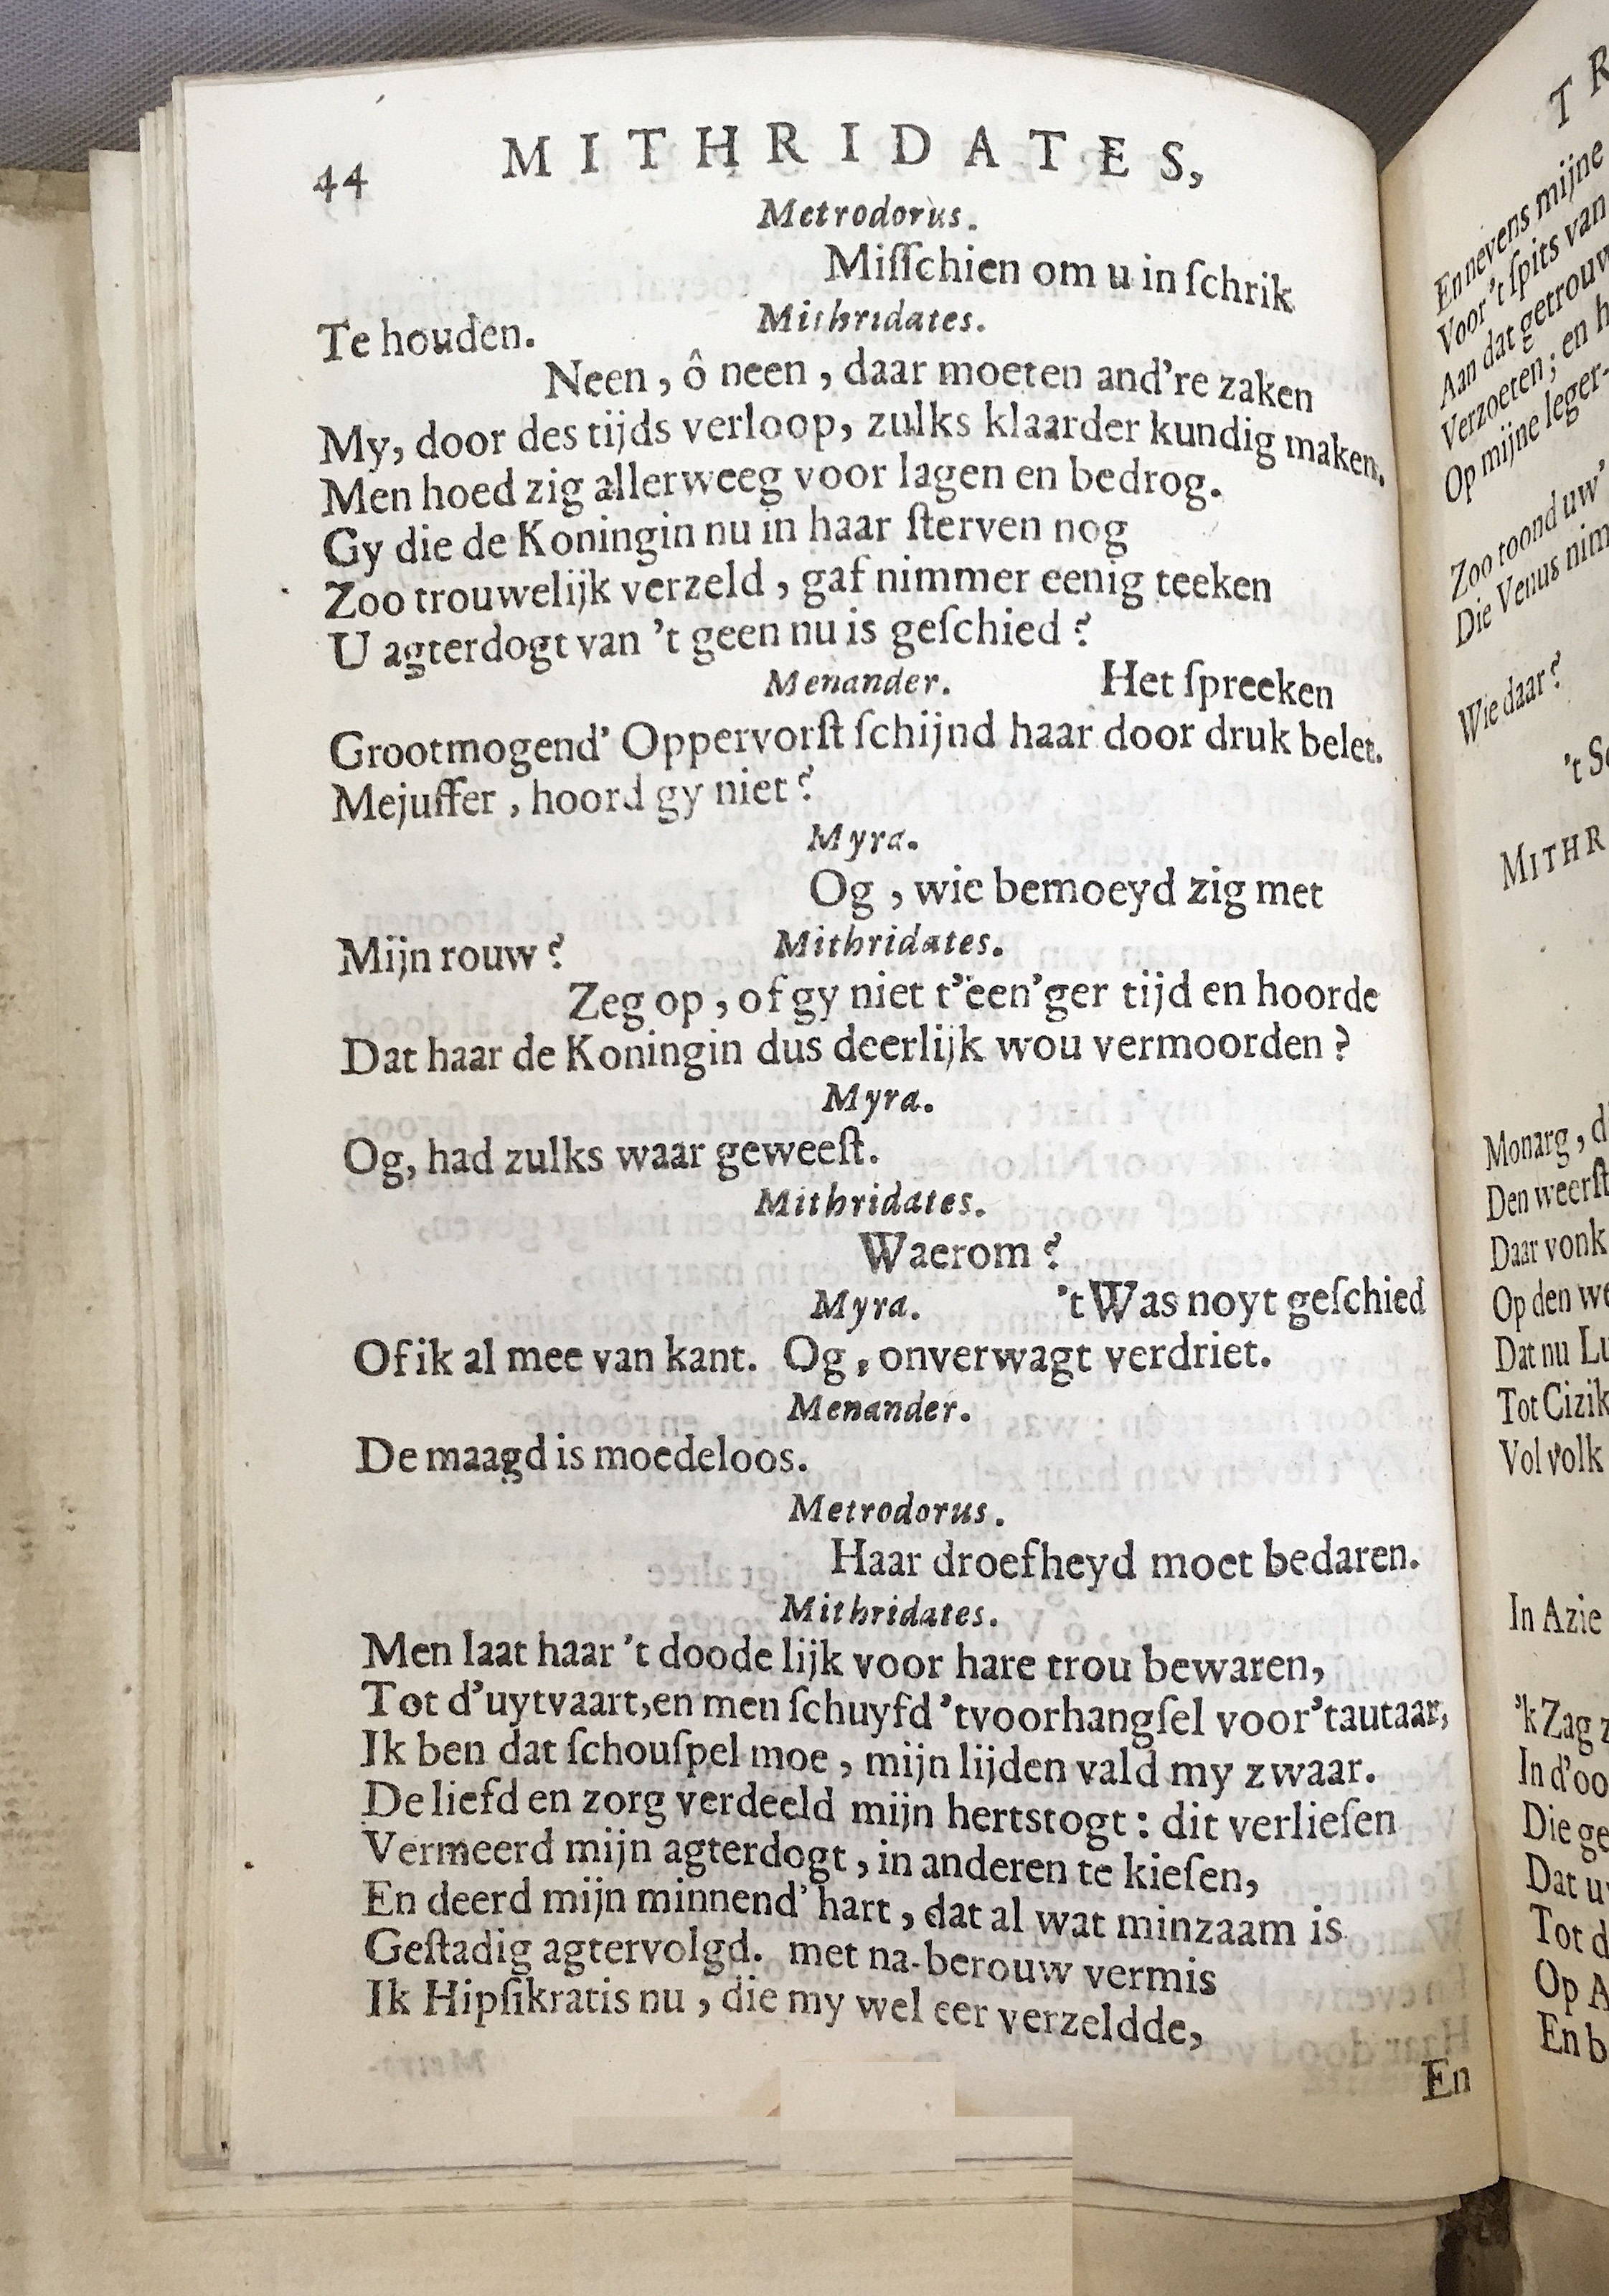 44 MITHRIDATES,
Metrodorus.
Miſſchien om u in ſchrik
Te houden.
Mithridates.
Neen, ô neen, daar moeten and’re zaken
My, door des tijds verloop, zulks klaarder kundig maken.
Men hoed zig allerweeg voor lagen en bedrog.
Gy die de Koningin nu in haar ſterven nog
Zoo trouwelijk verzeld, gaf nimmer eenig teeken
U agterdogt van ’t geen nu is geſchied?
Menander.
Het ſpreeken
Grootmogend’ Oppervorſt ſchijnd haar door druk belet.
Mejuffer, hoord gy niet?
Myra.
Og, wie bemoeyd zig met
Mijn rouw?
Mithridates.
Zeg op, of gy niet t’een’ger tijd en hoorde
Dat haar de Koningin dus deerlijk wou vermoorden?
Myra.
Og, had zulks waar geweeſt.
Mithridates.
Waerom?
Myra.
’t Was noyt geſchied
Of ik al mee van kant. Og, onverwagt verdriet.
Menander.
De maagd is moedeloos.
Metrodorus.
Haar droefheyd moet bedaren.
Mithridates.
Men laat haar ’t doode lijk voor hare trou bewaren,
Tot d’uytvaart, en men ſchuyfd ’tvoorhangſel voor’tautaar,
Ik ben dat ſchouſpel moe, mijn lijden vald my zwaar.
De liefd en zorg verdeeld mijn hertstogt: dit verlieſen
Vermeerd mijn agterdogt, in anderen te kieſen,
En deerd mijn minnend’ hart, dat al wat minzaam is
Geſtadig agtervolgd. met na-berouw vermis
Ik Hipſikratis nu, die my wel eer verzeldde,
En
T R
En nevens mijne
Voor ’t ſpits van
Aan dat getrouw
Verzoeten; en h
Op mijne leger-
Zoo toond uw’
Die Venus nim
Wie daar?
’t S
MITHR
Monarg, d
Den weerſt
Daar vonk
Op den we
Dat nu Lu
Tot Cizik
Vol volk
In Azie
’k Zag z
In d’oo
Die ge
Dat u
Tot d
Op A
En b